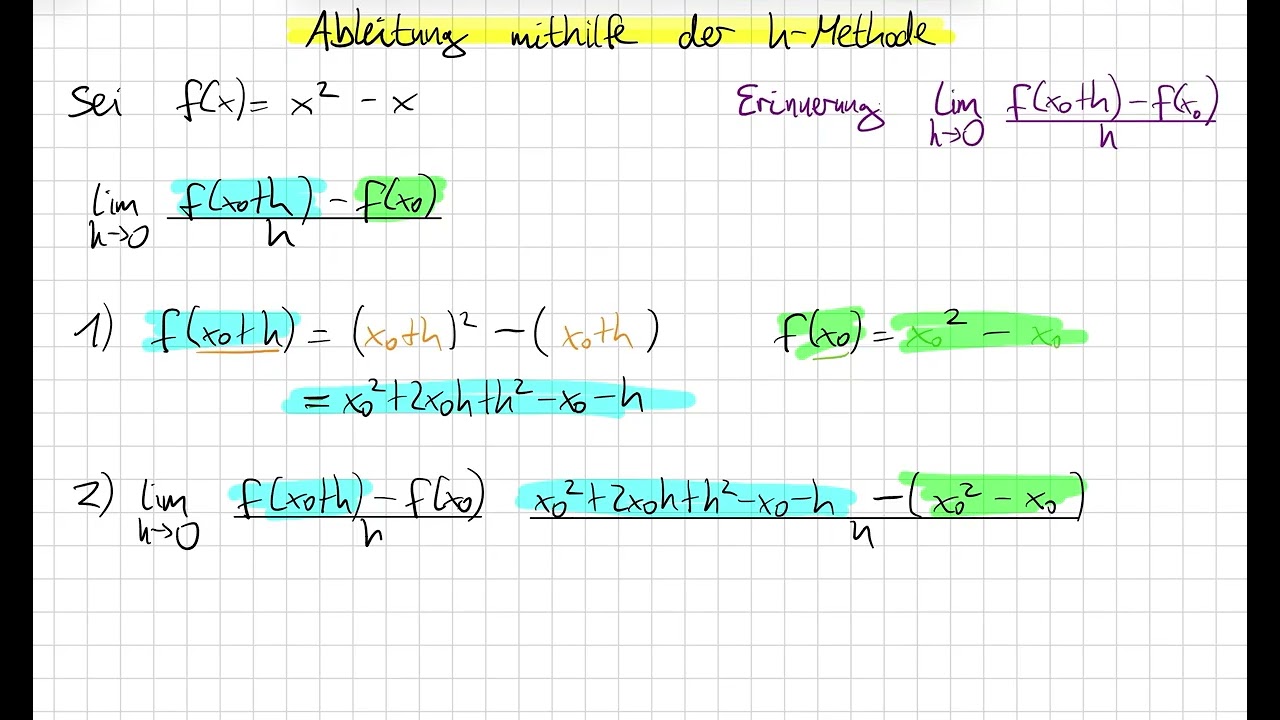 Ableitung mithilfe der h-Methode
Sei f(x) = x² - x
Erinnerung lim h→0 (f(x₀+h) - f(x₀))/h
lim h→0 (f(x₀+h) - f(x₀))/h
1) f(x₀+h) = (x₀+h)² - (x₀+h)
f(x₀) = x₀² - x₀
= x₀²+2x₀h+h²-x₀-h
2) lim h→0 (f(x₀+h) - f(x₀))/h (x₀²+2x₀h+h²-x₀-h -(x₀² - x₀))/h